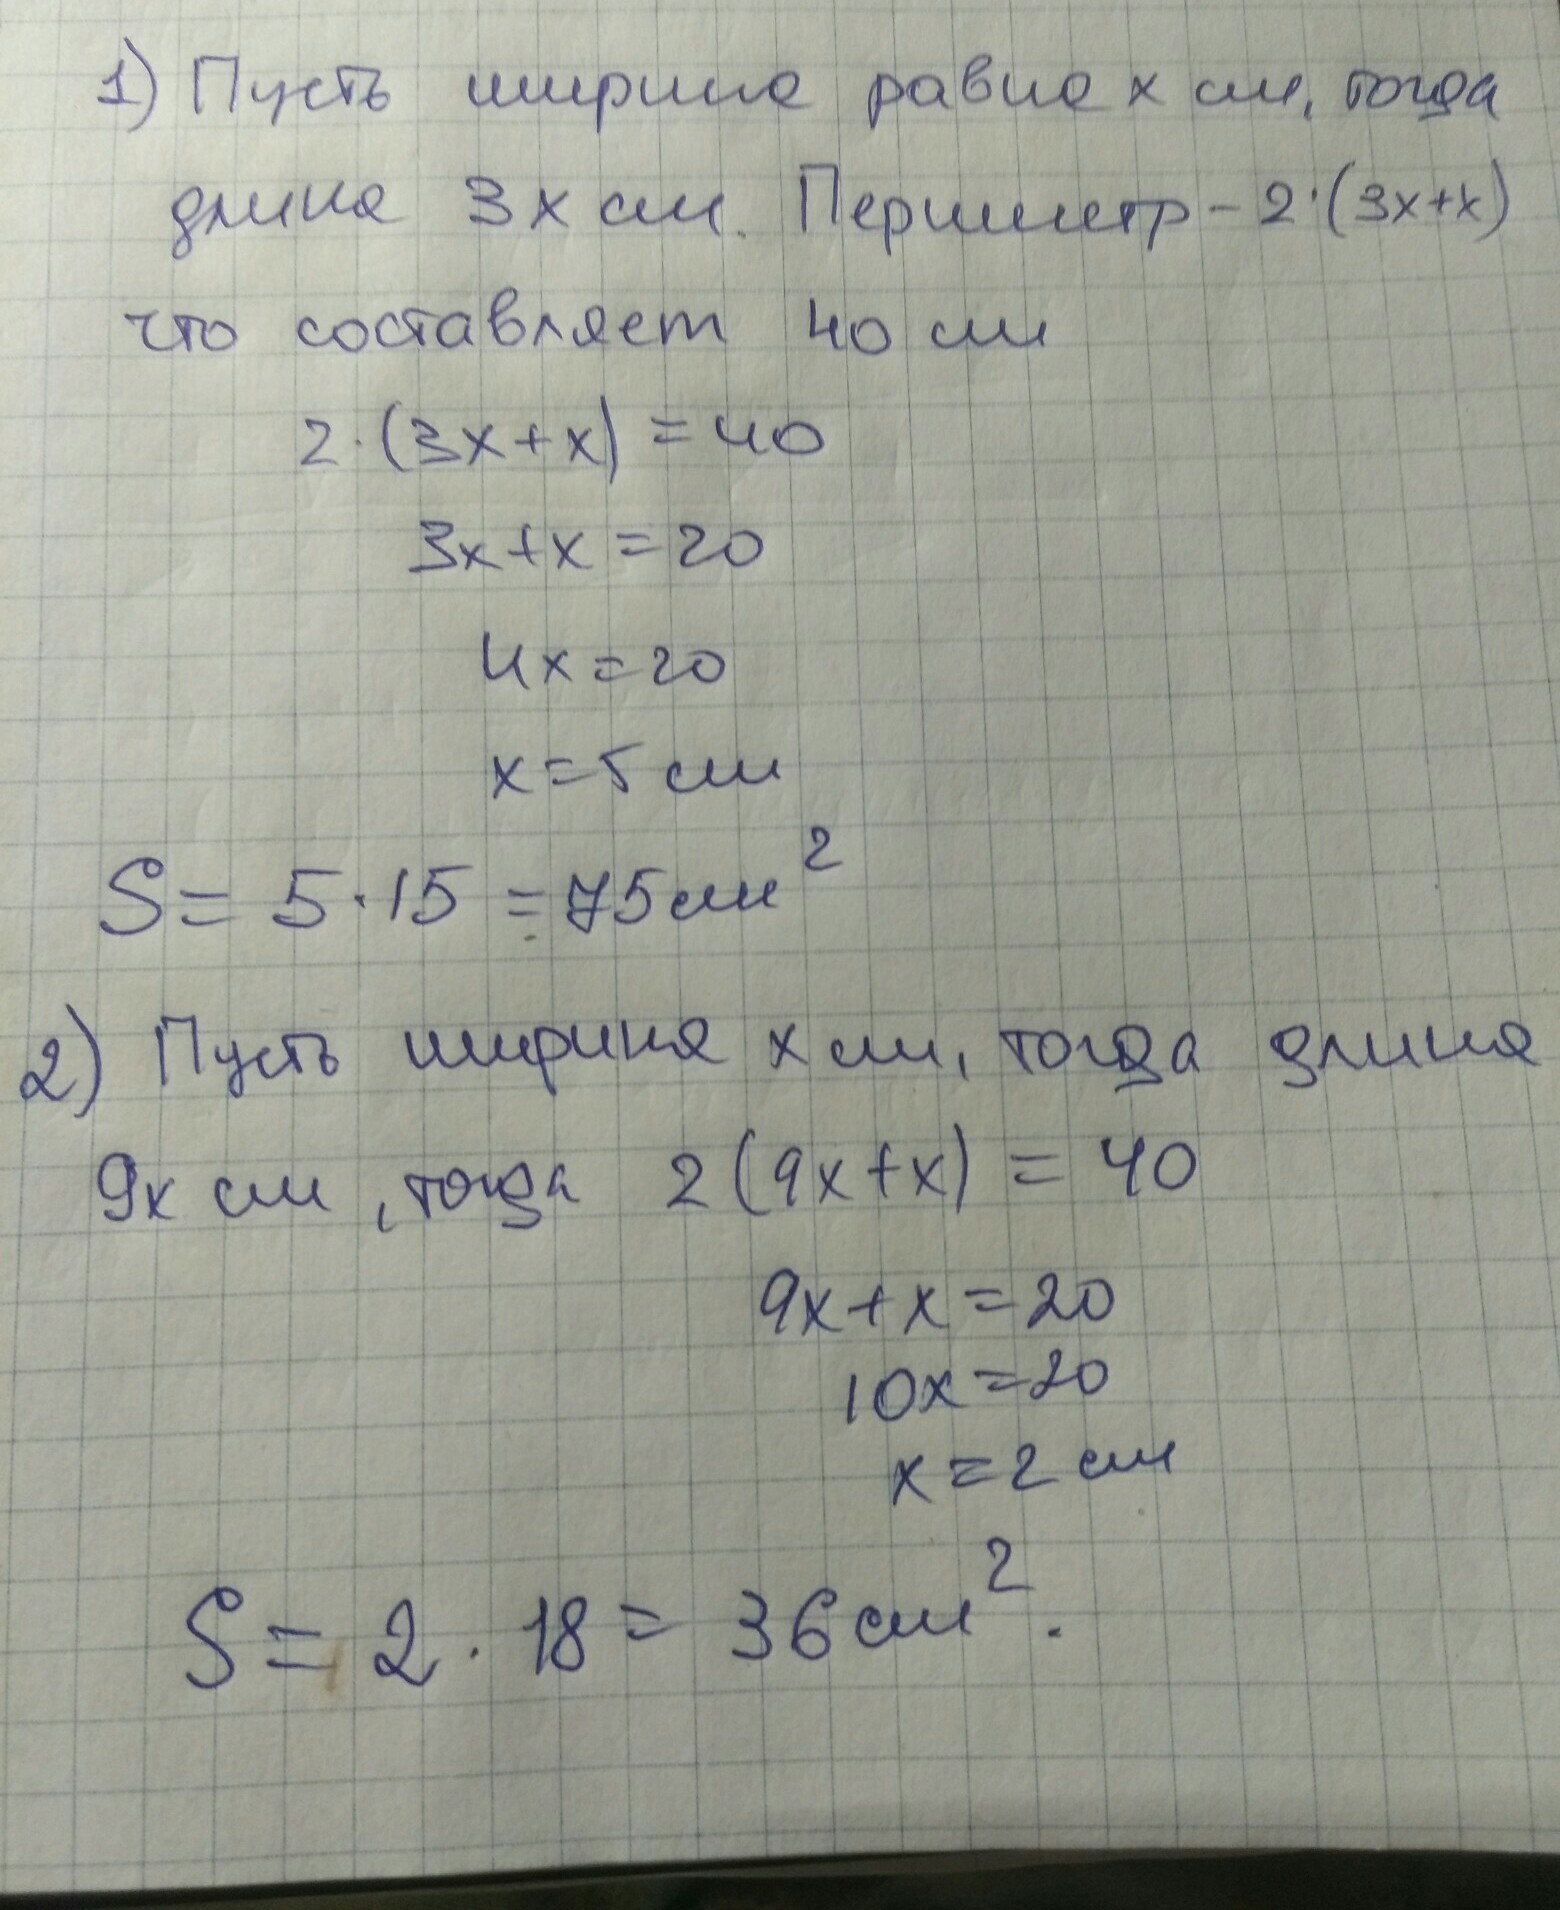 1) Пусть ширина равна x см, тогда
длина 3x см. Периметр - 2·(3x+x)
что составляет 40 см
2·(3x+x) = 40
3x+x = 20
4x = 20
x = 5 см
S = 5·15 = 75 см²
2) Пусть ширина x см, тогда длина
9x см, тогда 2(9x+x) = 40
9x+x = 20
10x = 20
x = 2 см
S = 2·18 = 36 см².